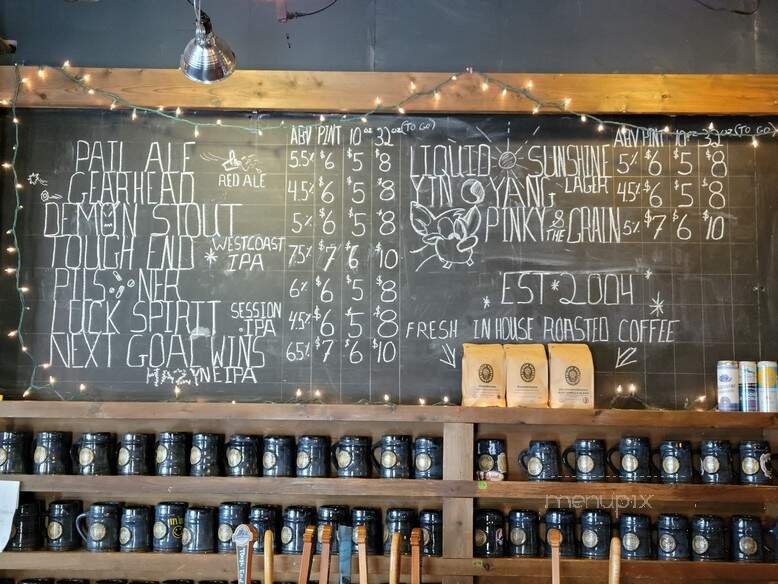 ABV PINT 10oz 32oz (TO GO)
PAIL ALE 5.5% $6 $5 $8
GEARHEAD RED ALE 4.5% $6 $5 $8
DEMON STOUT 5% $6 $5 $8
TOUGH END * WESTCOAST IPA 7.5% $7 $6 $10
PILS NER 6% $6 $5 $8
LUCK SPIRIT SESSION IPA 4.5% $6 $5 $8
NEXT GOAL WINS 6.5% $7 $6 $10
HAZY NEIPA
ABV PINT 10oz 32oz (TO GO)
LIQUID SUNSHINE 5% $6 $5 $8
YIN YANG LAGER 4.5% $6 $5 $8
PINKY & THE GRAIN 5% $7 $6 $10
EST 2004
FRESH IN HOUSE ROASTED COFFEE
menupix